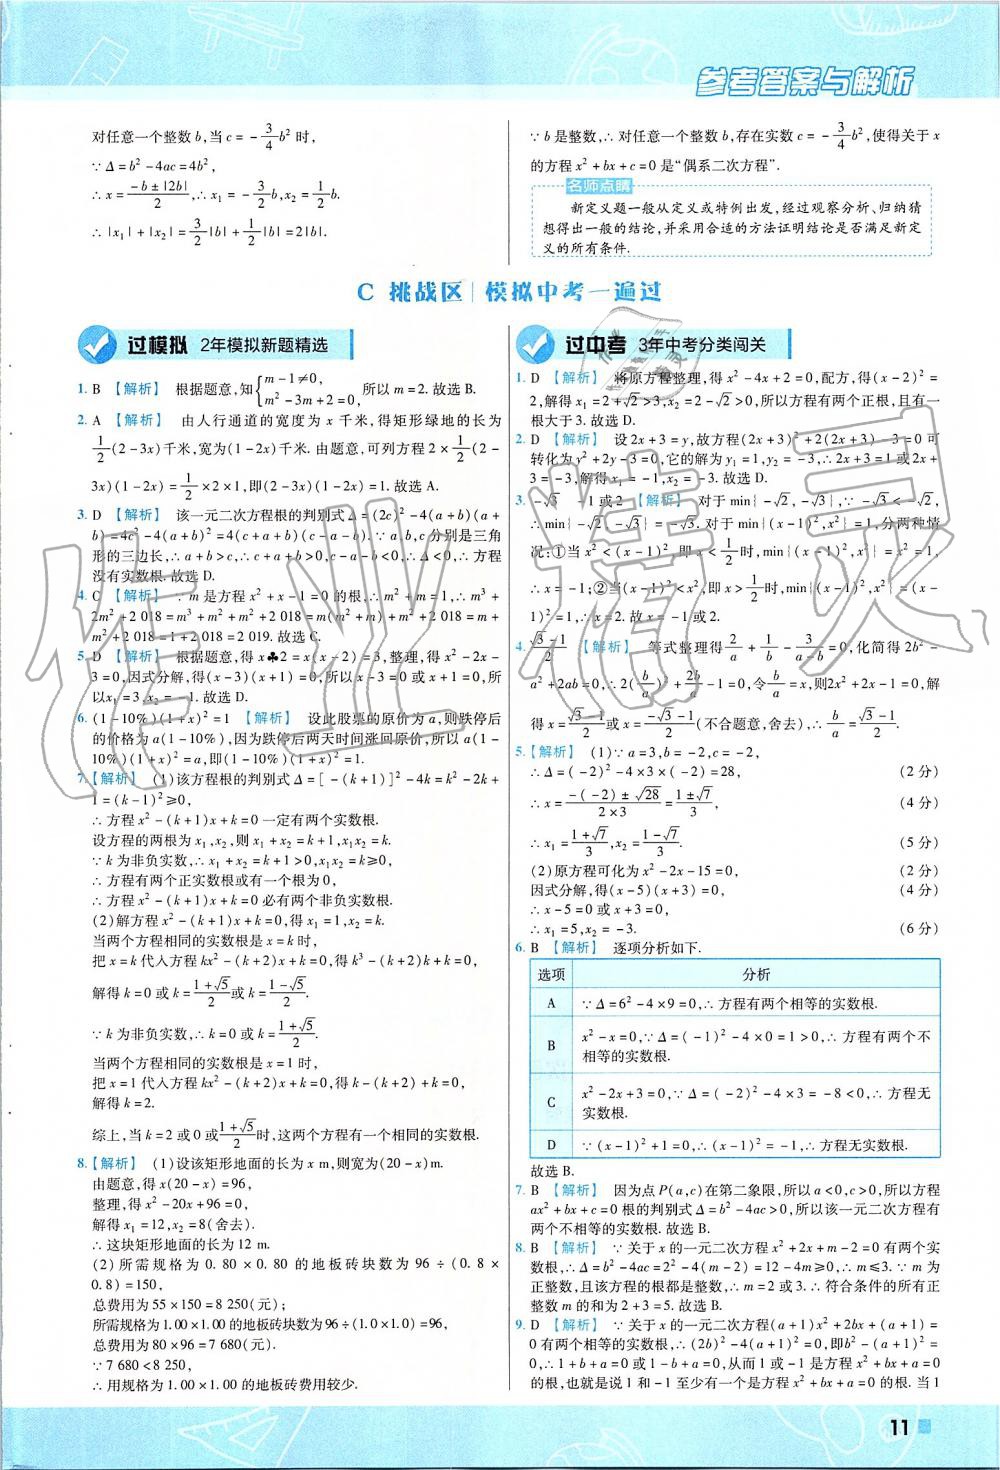 参考答案与解析
对任意一个整数b,当c=-\frac{3}{4}b²时,
∵Δ=b²-4ac=4b²,
∴x=\frac{-b±|2b|}{2},∴x₁=-\frac{3}{2}b,x₂=\frac{1}{2}b.
∴|x₁|+|x₂|=\frac{3}{2}|b|+\frac{1}{2}|b|=2|b|.
∵b是整数,∴对任意一个整数b,存在实数c=-\frac{3}{4}b²,使得关于x
的方程x²+bx+c=0是“偶系二次方程”.
名师点睛
新定义题一般从定义或特例出发,经过观察分析、归纳猜
想得出一般的结论,并采用合适的方法证明结论是否满足新定
义的所有条件.
C 挑战区 模拟中考一遍过
过模拟 2年模拟新题精选
1. B 【解析】 根据题意,知{m-1≠0, m²-3m+2=0, 所以m=2.故选B.
2. A 【解析】 由人行通道的宽度为x千米,得矩形绿地的长为
\frac{1}{2}(2-3x)千米,宽为(1-2x)千米.由题意,可列方程2×\frac{1}{2}(2-
3x)(1-2x)=\frac{1}{2}×2×1,即(2-3x)(1-2x)=1.故选A.
3. D 【解析】 该一元二次方程根的判别式Δ=(2c)²-4(a+b)(a+
b)=4c²-4(a+b)²=4(c+a+b)(c-a-b).∵a,b,c分别是三角
形的三边长,∴a+b>c,c+a+b>0,c-a-b<0,∴Δ<0,∴方程
没有实数根.故选D.
4. C 【解析】 ∵m是方程x²+x-1=0的根,∴m²+m=1,∴m³+
2m²+2 018=m³+m²+m²+2 018=m(m²+m)+m²+2 018=m+
m²+2 018=1+2 018=2 019.故选C.
5. D 【解析】 根据题意,得x♣2=x(x-2)=3,整理,得x²-2x-
3=0,因式分解,得(x-3)(x+1)=0,所以x-3=0或x+1=0,所
以x₁=3,x₂=-1.故选D.
6. (1-10%)(1+x)²=1 【解析】 设此股票的原价为a,则跌停后
的价格为a(1-10%),因为跌停后两天时间涨回原价,所以a(1-
10%)(1+x)²=a,即(1-10%)(1+x)²=1.
7. 【解析】 (1)该方程根的判别式Δ=[-(k+1)]²-4k=k²-2k+
1=(k-1)²≥0,
∴方程x²-(k+1)x+k=0一定有两个实数根.
设方程的两根为x₁,x₂,则x₁+x₂=k+1,x₁x₂=k.
∵k为非负实数,∴x₁+x₂=k+1>0,x₁x₂=k≥0,
∴方程有两个正实数根或有一个根为0,
∴方程x²-(k+1)x+k=0必有两个非负实数根.
(2)解方程x²-(k+1)x+k=0,得x₁=1,x₂=k.
当两个方程相同的实数根是x=k时,
把x=k代入方程kx²-(k+2)x+k=0,得k³-(k+2)k+k=0,
解得k=0或k=\frac{1+√5}{2}或k=\frac{1-√5}{2}.
∵k为非负实数,∴k=0或k=\frac{1+√5}{2}.
当两个方程相同的实数根是x=1时,
把x=1代入方程kx²-(k+2)x+k=0,得k-(k+2)+k=0,
解得k=2.
综上,当k=2或0或\frac{1+√5}{2}时,这两个方程有一个相同的实数根.
8. 【解析】 (1)设该矩形地面的长为x m,则宽为(20-x)m.
由题意,得x(20-x)=96,
整理,得x²-20x+96=0,
解得x₁=12,x₂=8(舍去).
∴这块矩形地面的长为12 m.
(2)所需规格为0.80×0.80的地板砖块数为96÷(0.8×
0.8)=150,
总费用为55×150=8 250(元);
所需规格为1.00×1.00的地板砖块数为96÷(1.0×1.0)=96,
总费用为80×96=7 680(元).
∵7 680<8 250,
∴用规格为1.00×1.00的地板砖费用较少.
过中考 3年中考分类闯关
1. D 【解析】 将原方程整理,得x²-4x+2=0,配方,得(x-2)²=
2,解得x₁=2+√2>3,x₂=2-√2>0,所以方程有两个正根,且有一
根大于3.故选D.
2. D 【解析】 设2x+3=y,故方程(2x+3)²+2(2x+3)-3=0可
转化为y²+2y-3=0,它的解为y₁=1,y₂=-3,∴2x+3=1或2x+
3=-3,解得x₁=-1,x₂=-3.故选D.
3. -√3 -1或2 【解析】 对于min{-√2,-√3},∵-√3<-√2,
∴min{-√2,-√3}=-√3.对于min{(x-1)²,x²}=1,分两种情
况:①当x²<(x-1)²,即x<\frac{1}{2}时,min{(x-1)²,x²}=x²=1,
∴x=-1;②当(x-1)²<x²,即x>\frac{1}{2}时,min{(x-1)²,x²}=(x-
1)²=1,∴x=2.故x=-1或2.
4. \frac{√3-1}{2} 【解析】 等式整理得\frac{2}{a}+\frac{1}{b}-\frac{3}{b-a}=0,化简得2b²-
a²+2ab=0,∴2(\frac{b}{a})²+\frac{2b}{a}-1=0,令\frac{b}{a}=x,则2x²+2x-1=0,解
得x=\frac{√3-1}{2}或x=\frac{-√3-1}{2}(不合题意,舍去),∴\frac{b}{a}=\frac{√3-1}{2}.
5. 【解析】 (1)∵a=3,b=-2,c=-2,
∴Δ=(-2)²-4×3×(-2)=28, (2分)
∴x=\frac{-(-2)±√28}{2×3}=\frac{1±√7}{3}, (4分)
∴x₁=\frac{1+√7}{3},x₂=\frac{1-√7}{3}. (5分)
(2)原方程可化为x²-2x-15=0, (2分)
因式分解,得(x-5)(x+3)=0, (4分)
∴x-5=0或x+3=0,
∴x₁=5,x₂=-3. (6分)
6. B 【解析】 逐项分析如下.
选项 分析
A ∵Δ=6²-4×9=0,∴方程有两个相等的实数根.
B x²-x=0,∵Δ=(-1)²-4×0=1>0,∴方程有两个不
相等的实数根.
C x²-2x+3=0,∵Δ=(-2)²-4×3=-8<0,∴方程无
实数根.
D ∵(x-1)²+1=0,∴(x-1)²=-1,∴方程无实数根.
故选B.
7. B 【解析】 因为点P(a,c)在第二象限,所以a<0,c>0,所以方程
ax²+bx+c=0根的判别式Δ=b²-4ac>0,所以一元二次方程有
两个不相等的实数根.故选B.
8. B 【解析】 ∵关于x的一元二次方程x²+2x+m-2=0有两个实
数根,∴Δ=b²-4ac=2²-4(m-2)=12-4m≥0,∴m≤3.∵m为
正整数,且该方程的根都是整数,∴m=2或3.∴符合条件的所有正
整数m的和为2+3=5.故选B.
9. D 【解析】 ∵关于x的一元二次方程(a+1)x²+2bx+(a+1)=
0有两个相等的实数根,∴(2b)²-4(a+1)²=0,即b²-(a+1)²
=0,∴1+b+a=0或1-b+a=0,从而1或-1是方程x²+bx+a=0
的根,也就是说1和-1至少有一个是方程x²+bx+a=0的根.当1
11
作业精灵